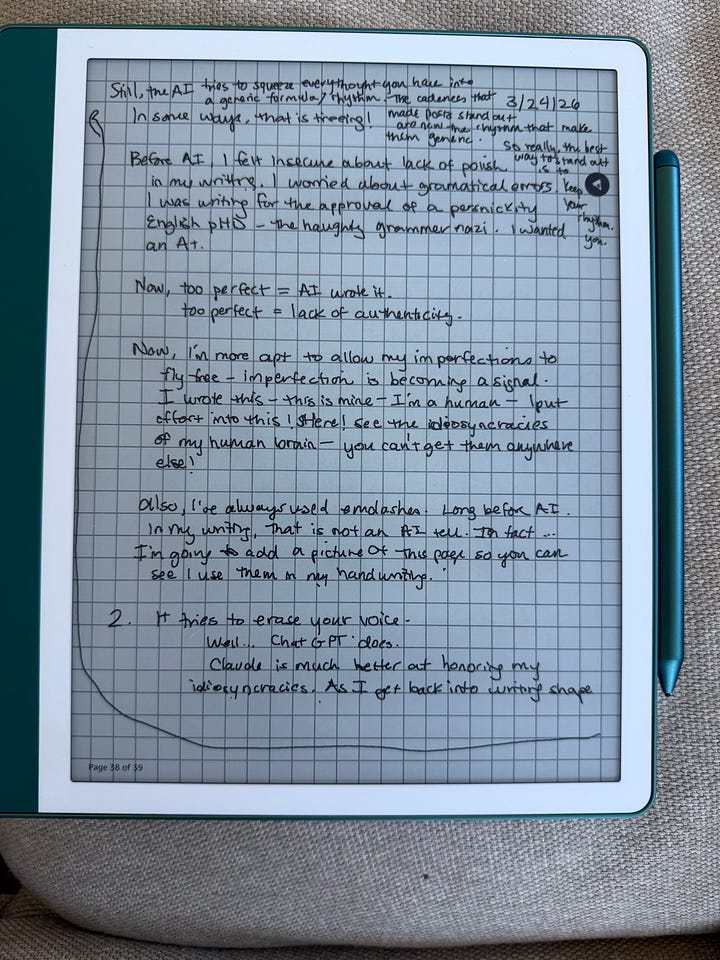 Still, the AI tries to squeeze every thought you have into
a generic formula / rhythm. The cadences that
made posts stand out
are now the rhythm that make
them generic.
So really, the best
way to stand out
is to
keep
your
rhythm.
you.
3/24/26
In some ways, that is freeing!
Before AI, I felt insecure about lack of polish
in my writing. I worried about gramatical errors.
I was writing for the approval of a persnickity
English pHD – the haughty grammer nazi. I wanted
an A+.
Now, too perfect = AI wrote it.
too perfect = lack of authenticity.
Now, I'm more apt to allow my imperfections to
fly free – imperfection is becoming a signal.
I wrote this – this is mine – I'm a human – I put
effort into this! Here! see the idiosyncracies
of my human brain – you can't get them anywhere
else!
Also, I've always used emdashes. Long before AI.
In my writing, that is not an AI tell. In fact...
I'm going to add a picture of this page so you can
see I use them in my handwriting.
2. It tries to erase your voice –
Well... Chat GPT does.
Claude is much better at honoring my
idiosyncracies. As I get back into writing shape
Page 38 of 39